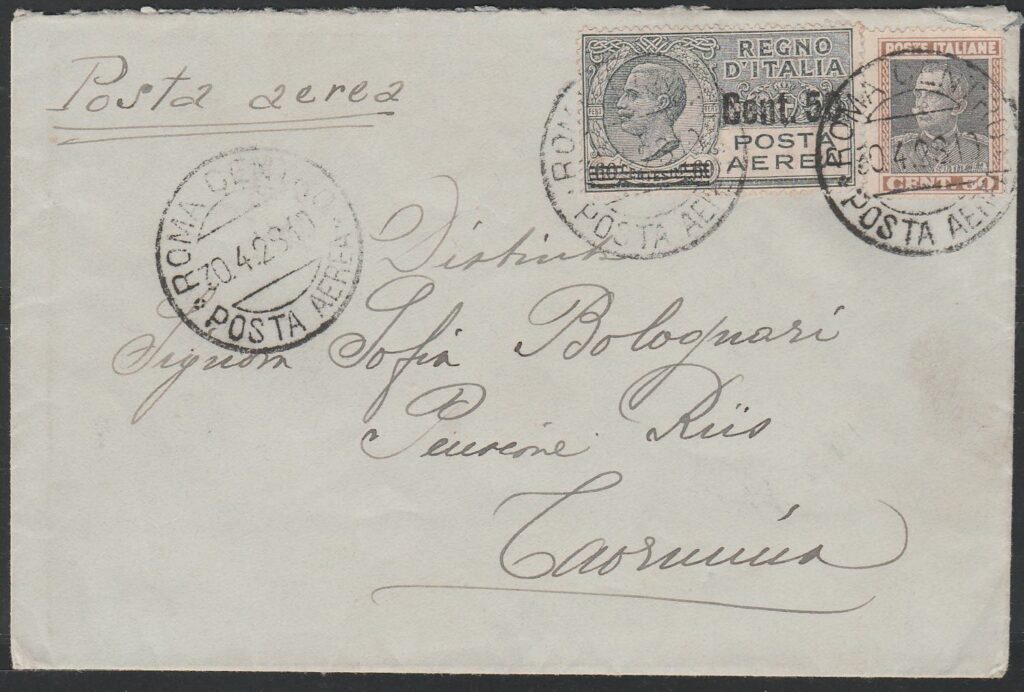 Posta aerea
REGNO
D'ITALIA
Cent. 50
POSTA
AEREA
60 CENTESIMI 60
POSTE ITALIANE
CENT. 50
ROMA CENTRO
30.4.28.10
POSTA AEREA
ROMA CENTRO
30.4.28.10
POSTA AEREA
ROMA
POSTA AEREA
Distinta
Signora Sofia Bolognari
Pensione Riis
Taormina